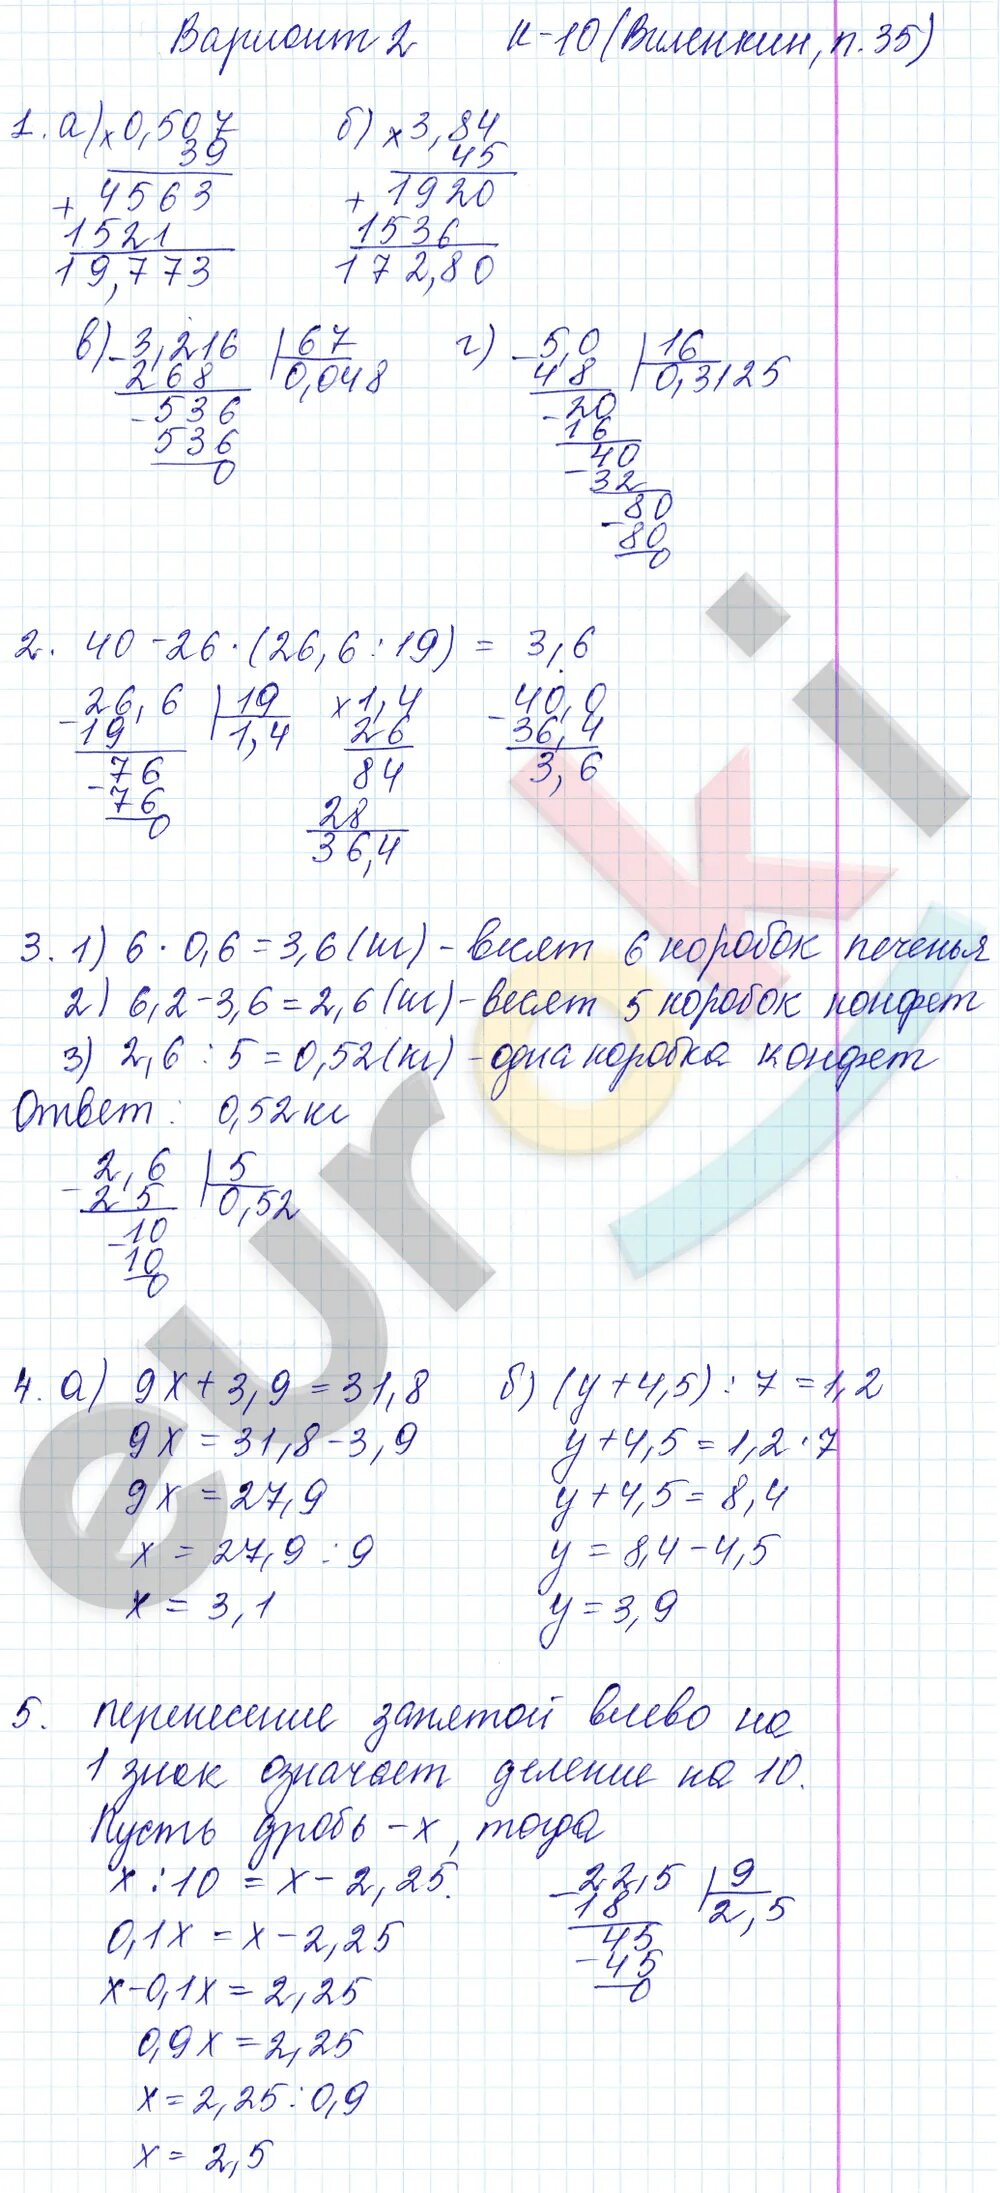 Вариант 2 К-10 (Виленкин, п.35)
1. а) × 0,507 б) × 3,84
39 45
+ 4563 + 1920
1521 1536
19,773 172,80
в) - 3,216 | 67 г) - 5,0 | 16
268 0,048 48 0,3125
- 536 - 20
536 16
0 40
- 32
80
- 80
0
2. 40 - 26 · (26,6 : 19) = 3,6
- 26,6 | 19 × 1,4 - 40,0
19 1,4 26 36,4
- 76 84 3,6
76 28
0 36,4
3. 1) 6 · 0,6 = 3,6 (кг) - весят 6 коробок печенья
2) 6,2 - 3,6 = 2,6 (кг) - весят 5 коробок конфет
3) 2,6 : 5 = 0,52 (кг) - одна коробка конфет
Ответ: 0,52 кг
- 2,6 | 5
25 0,52
- 10
10
0
4. а) 9x + 3,9 = 31,8 б) (y + 4,5) : 7 = 1,2
9x = 31,8 - 3,9 y + 4,5 = 1,2 · 7
9x = 27,9 y + 4,5 = 8,4
x = 27,9 : 9 y = 8,4 - 4,5
x = 3,1 y = 3,9
5. перенесение запятой влево на
1 знак означает деление на 10.
Пусть дробь - x, тогда
x : 10 = x - 2,25. - 22,5 | 9
0,1x = x - 2,25 18 2,5
x - 0,1x = 2,25 45
0,9x = 2,25 - 45
x = 2,25 : 0,9 0
x = 2,5
euroki